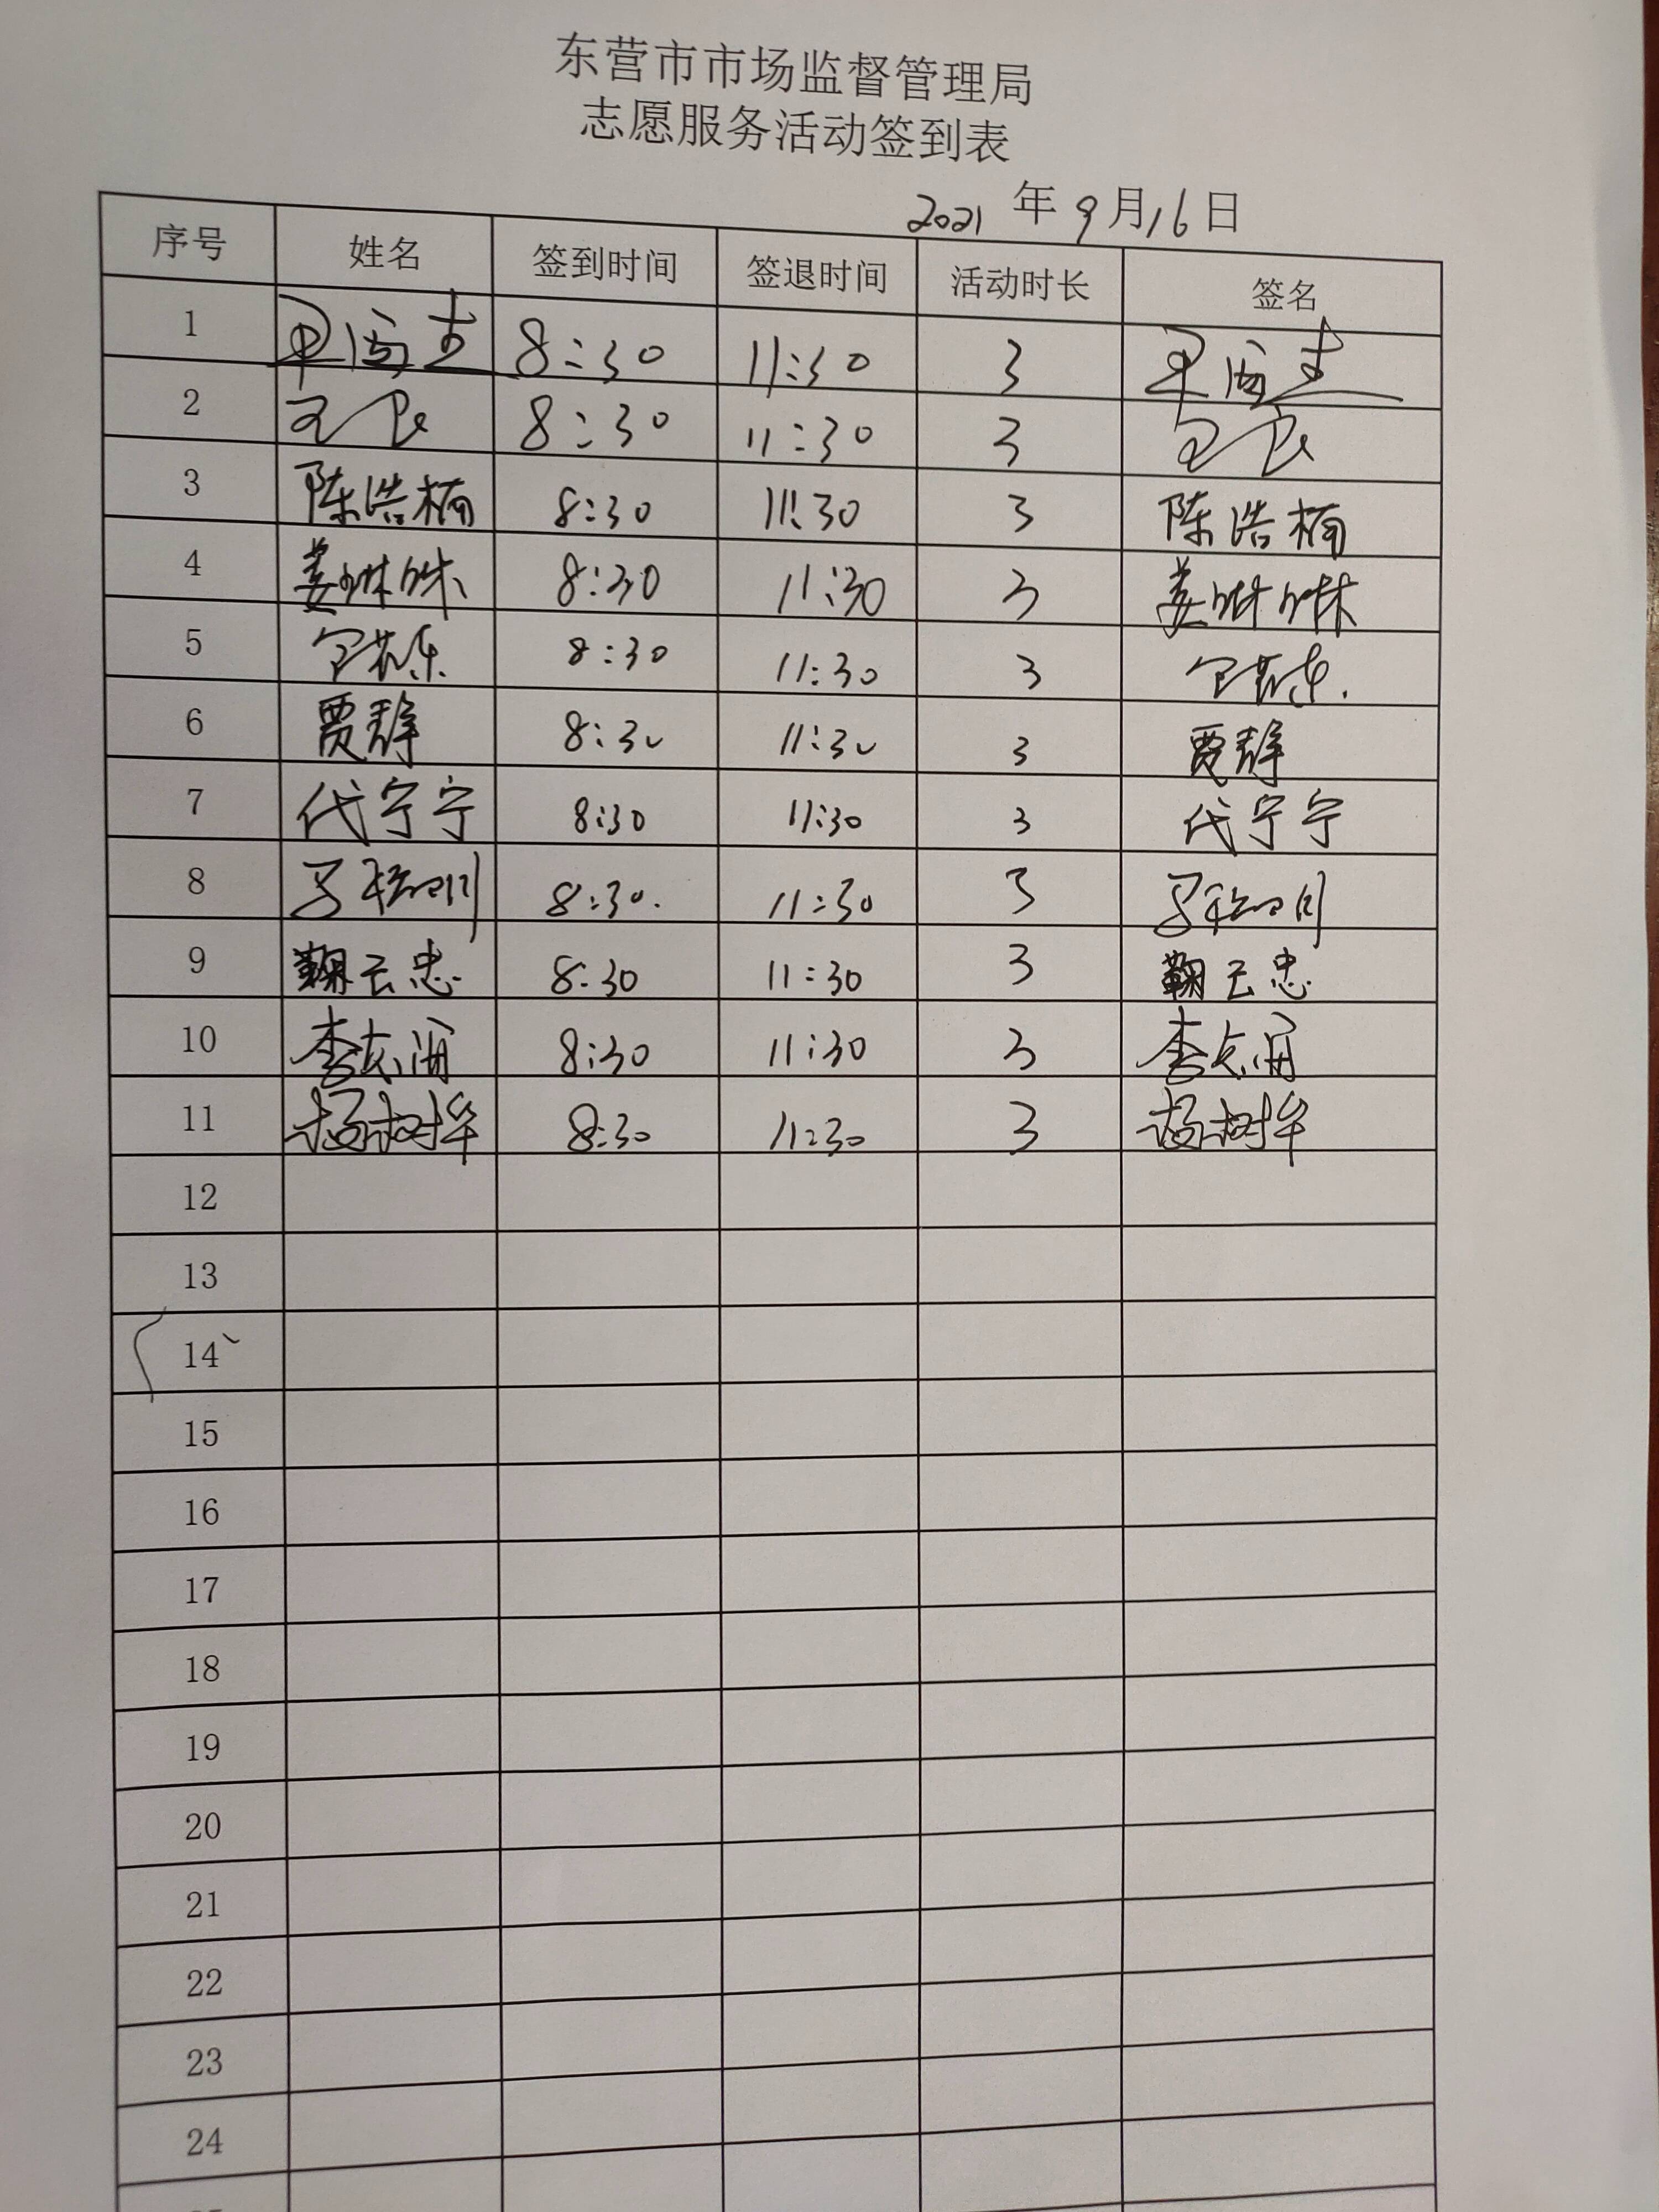 东营市市场监督管理局
志愿服务活动签到表
2021 年 9 月 16 日
序号 姓名 签到时间 签退时间 活动时长 签名
1 8:30 11:30 3
2 8:30 11:30 3
3 陈浩楠 8:30 11:30 3 陈浩楠
4 姜琳琳 8:30 11:30 3 姜琳琳
5 8:30 11:30 3
6 贾静 8:30 11:30 3 贾静
7 代宁宁 8:30 11:30 3 代宁宁
8 8:30 11:30 3
9 鞠云忠 8:30 11:30 3 鞠云忠
10 8:30 11:30 3
11 杨树华 8:30 11:30 3 杨树华
12
13
14
15
16
17
18
19
20
21
22
23
24